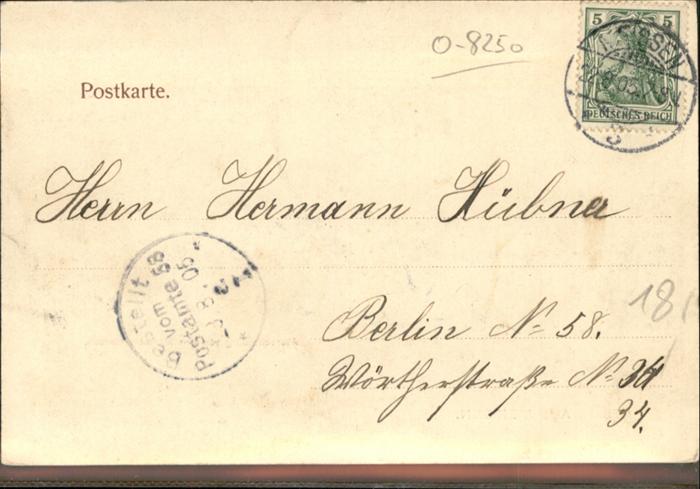 O-8250
5 5
DEUTSCHES REICH
Postkarte.
Herrn Hermann Hübner
Bestellt
vom
Postamte 58
8. 05
181
Berlin N= 58.
Wörtherstraße N= 34
34.